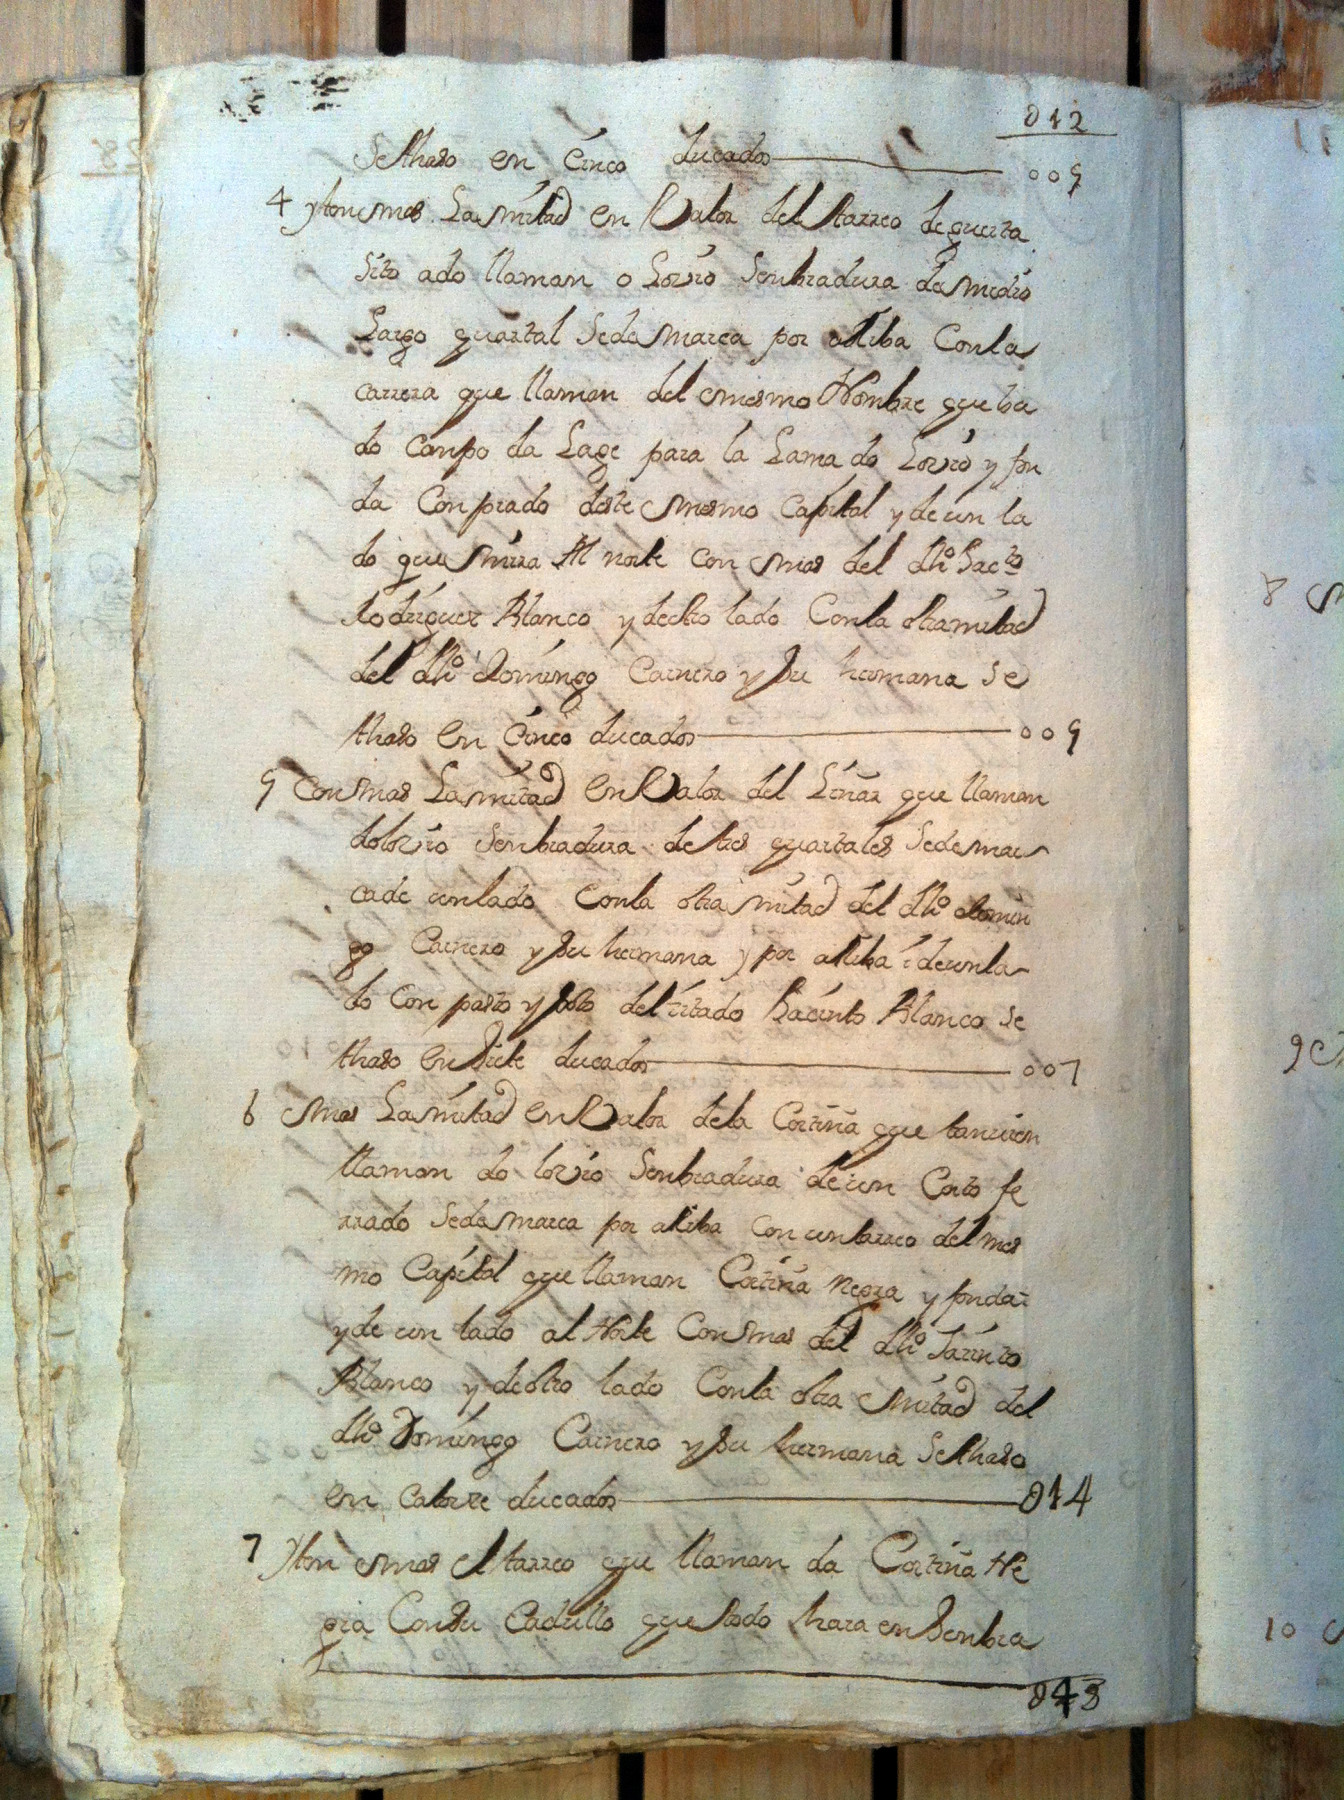 012
Se thaso en Cinco ducados 005
4 yten mas La mitad en Valor del tarreo de guerta
sito ado llaman o Lorrio Senbradura de medio
Largo quartal Sede marca por arriba Conla
carrera que llaman del mesmo Nombre que ba
do campo da Lage para la Lama do Lorrio y fon
da Con prado deste mesmo Capital y de un la
do que mira Al norte con mas del dho Jacto
Rodriguez Blanco y deotro lado Conla otra mitad
del dho Domingo Carnero y su hermana se
thaso en Cinco ducados 005
5 Con mas La mitad en Valor del Liñar que llaman
dolorrio Senbradura de tres quartales Sede mar
cade un lado Conla otra mitad del dho domin
go Carnero y su hermana y por arriba i deunla
do Con pasto y soto del zitado Hacinto Blanco se
thaso en Siete ducados 007
6 mas La mitad en Valor dela Cortiña que tanvien
llaman do lorrio Senbradura de un Corto fe
rrado Sede marca por arriba Con un tarreo del mes
mo Capital que llaman Cortiña negra y fonda
y de un lado al Norte Con mas del dho Jazinto
Blanco y deotro lado Conla otra mitad del
dho Domingo Carnero y su hermana Se thaso
en catorze ducados 014
7 Yten mas el tarreo que llaman da Cortiña Ne
gra Consu Cadullo que todo hara en Senbra
043
8
9
10